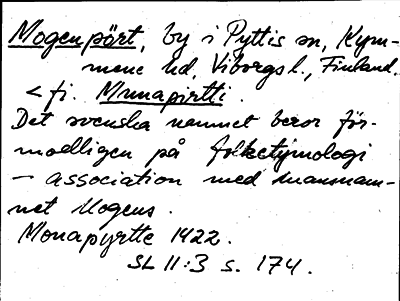 Mogenpört, by i Pyttis sn, Kym-
mene hd, Viborgs l., Finland.
< fi. Munapirtti.
Det svenska namnet beror för-
modligen på folketymologi
– association med mansnam-
net Mogens.
Monapyrtte 1422.
SL 11:3 s. 174.